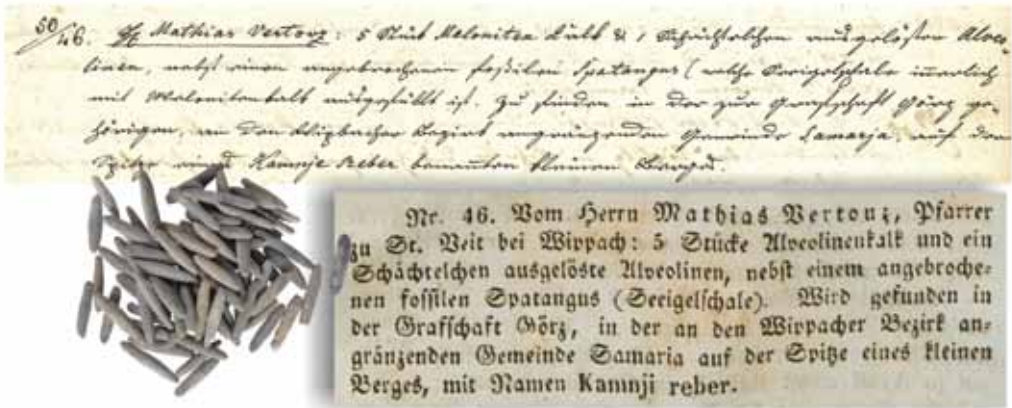 50/46. Mathias Vertouz: 5 Stük Melonitenkalk & 1 Schächtelchen ausgelöster Alveo-
linen, nebst einem angebrochenen fossilen Spatangus (welche Seeigelschale innerlich
mit Melonitenkalk ausgefüllt ist. Zu finden in der zur Grafschaft Görz ge-
hörigen, an den Bezirk angränzenden Gemeinde Samarja, auf der
Spitze eines Kamnje Reber benannten kleinen Berges.
Nr. 46. Vom Herrn Mathias Vertouz, Pfarrer
zu St. Veit bei Wippach: 5 Stücke Alveolinenkalk und ein
Schächtelchen ausgelöste Alveolinen, nebst einem angebroche-
nen fossilen Spatangus (Seeigelschale). Wird gefunden in
der Grafschaft Görz, in der an den Wippacher Bezirk an-
gränzenden Gemeinde Samaria auf der Spitze eines kleinen
Berges, mit Namen Kamnji reber.